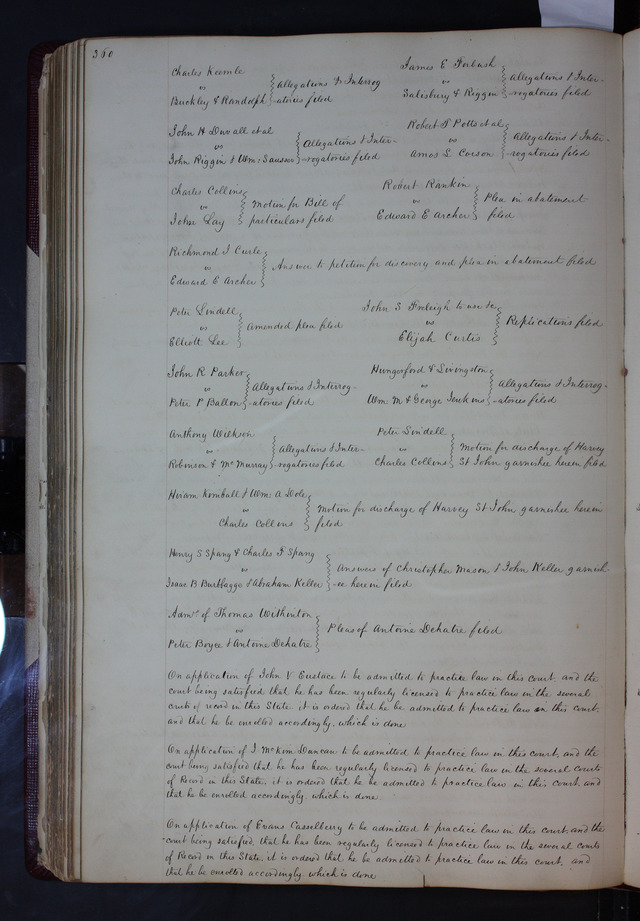 360
Charles Keemle
vs
Buckley & Randolph
Allegations & Interrog
-atories filed
James E Forbush
vs
Salisbury & Riggin
Allegations & Inter-
-rogatories filed
John H Duvall et al
vs
John Riggin & Wm: Sausser
Allegations & Inter-
-rogatories filed
Robert T Potts et al
vs
Amos L Corson
Allegations & Inter-
-rogatories filed
Charles Collins
vs
John Lay
Motion for Bill of
particulars filed
Robert Rankin
vs
Edward E Archer
Plea in abatement
filed
Richmond J Curle
vs
Edward E Archer
Answer to petition for discovery and plea in abatement filed
Peter Lindell
vs
Elliott Lee
Amended plea filed
John S Freleigh to use &c
vs
Elijah Curtis
Replications filed
John R Parker
vs
Peter P Ballon
Allegations & Interrog-
-atories filed
Hungerford & Livingston
vs
Wm: M & George Jenkins
Allegations & Interrog-
-atories filed
Anthony Wilkson
vs
Robinson & McMurray
Allegations & Inter-
-rogatories filed
Peter Lindell
vs
Charles Collins
Motion for discharge of Harvey
St John garnishee herein filed
Hiram Kimball & Wm: A Dole
vs
Charles Collins
Motion for discharge of Harvey St John garnishee herein
filed
Henry S Spang & Charles F Spang
vs
Isaac B Burbbagge & Abraham Keller
Answers of Christopher Mason & John Keller garnish
-ee herein filed
Admr of Thomas Withinton
vs
Peter Boyce & Antoine Dehatre
Pleas of Antoine Dehatre filed
On application of John V Eustace to be admitted to practice law in this court, and the
court being satisfied that he has been regularly licensed to practice law in the several
courts of record in this State, it is ordered that he be admitted to practice law in this court,
and that he be enrolled accordingly. which is done
On application of J McKim Duncan to be admitted to practice law in this court, and the
court being satisfied that he has been regularly licensed to practice law in the several courts
of Record in this State, it is ordered that he be admitted to practice law in this court, and
that he be enrolled accordingly. which is done.
On application of Evans Casselberry to be admitted to practice law in this court, and the
court being satisfied, that he has been regularly licensed to practice law in the several courts
of Record in this State, it is ordered that he be admitted to practice law in this court, and
that he be enrolled accordingly. which is done